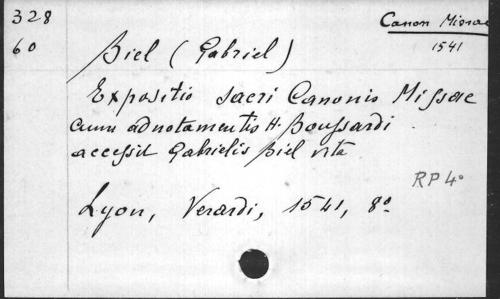 328
60
Canon Missae
1541
Biel (Gabriel)
Expositio sacri Canonis Missae
cum adnotamentis H. Boussardi
accessit Gabrielis Biel vita
RP 4°
Lyon, Verardi, 1541, 8°.